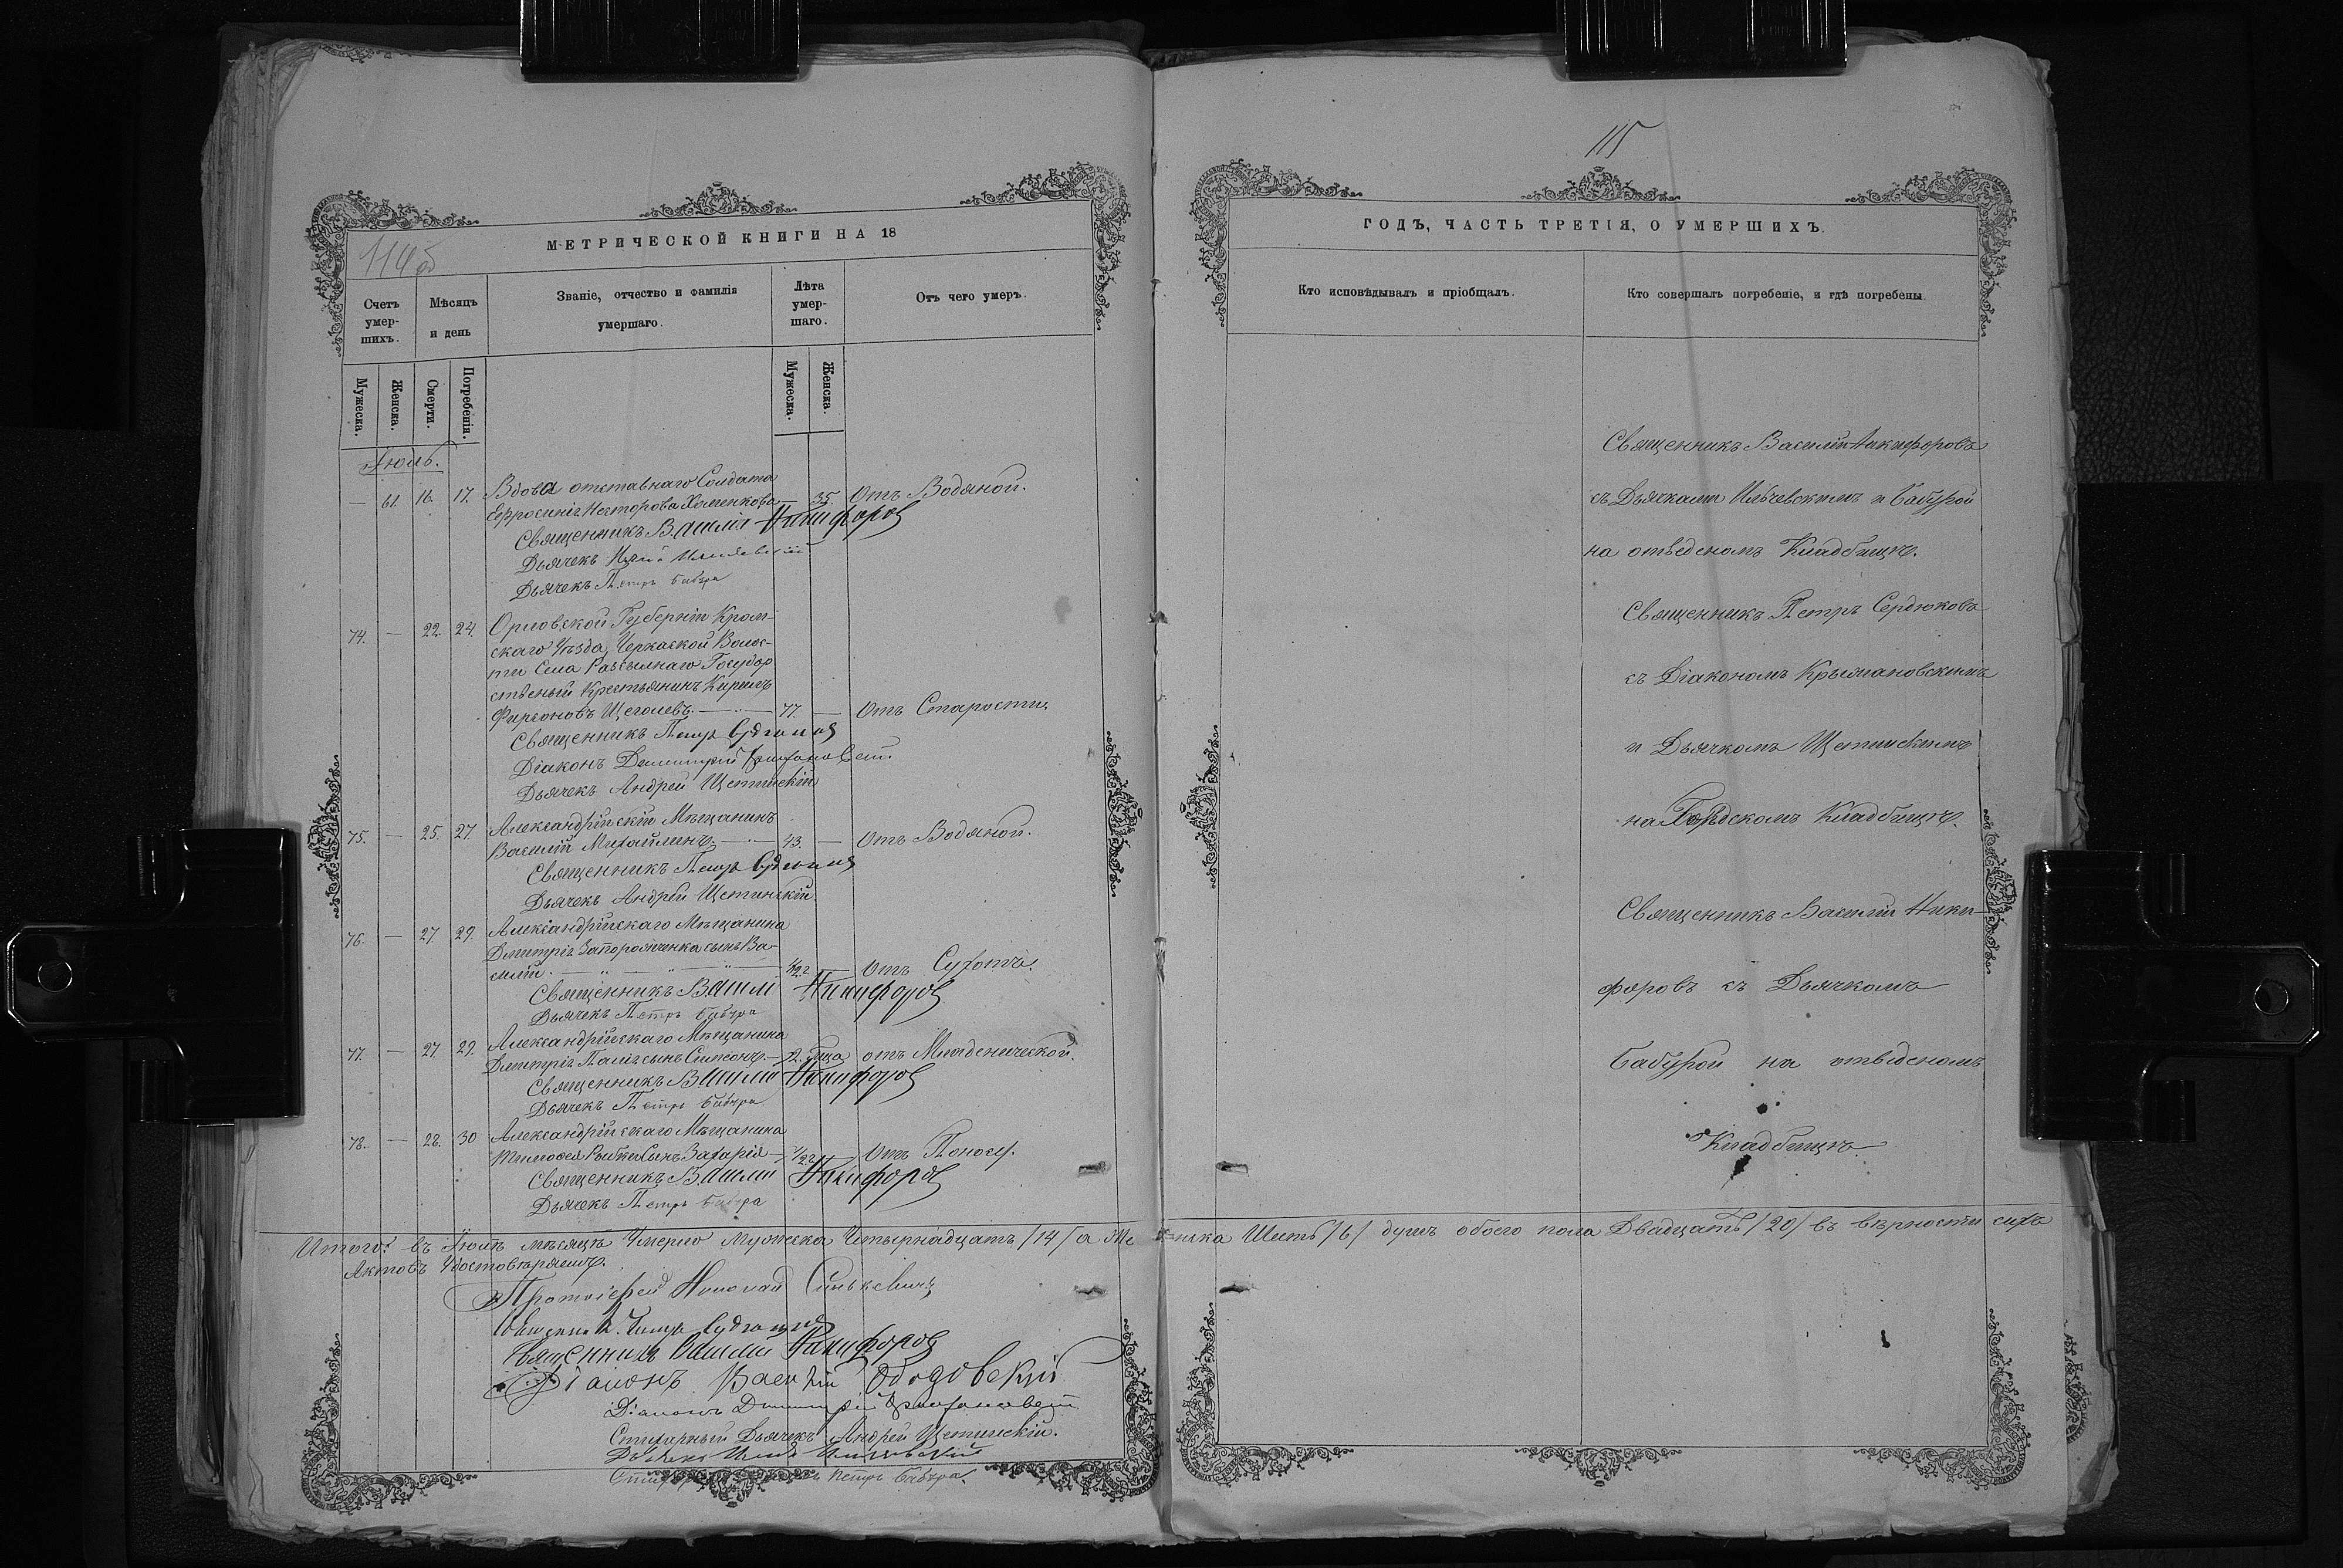 114об
МЕТРИЧЕСКОЙ КНИГИ НА 18
Счетъ умер-шихъ.
Мѣсяцъ и день
Званіе, отчество и фамилія умершаго.
Лѣта умер-шаго.
Отъ чего умеръ.
Мужеска.
Женска.
Смерти.
Погребенія.
Мужеска.
Женска.
Іюль.
Вдова отставнаго Солдата
— 61. 16. 17. Ефросинія Несторова Хоменкова — 35. Отъ Водяной.
Священникъ Василій Никифоровъ
Дьячекъ
Дьячекъ Петръ Бабура
Орловской Губерніи Кром-
74. — 22. 24. скаго Уѣзда, Черкаской Волос-
ти Села Разсыльнаго Государ
ственый Крестьянинъ Кирилъ
Фирсоновъ Щеголевъ. 77. — Отъ Старости.
Священникъ Петръ Сердюковъ
Діаконъ Димитрій Крыжановскій.
Дьячекъ Андрей Щетинскій
75. — 25. 27. Александрійскій Мѣщанинъ
Василій Михайлинъ. 43. — Отъ Водяной.
Священникъ Петръ Сердюковъ
Дьячекъ Андрей Щетинскій
76. — 27. 29. Александрійскаго Мѣщанина
Дмитрія Запорожченка сынъ Ва-
силій. 1/2 г. — Отъ Сухотъ.
Священникъ Василій Никифоровъ
Дьячекъ Петръ Бабура
Александрійскаго Мѣщанина
77. — 27. 29. Дмитрія Палія сынъ Симеонъ. — 2. отъ Младенческой.
Священникъ Василій Никифоровъ
Дьячекъ Петръ Бабура
78. — 28. 30 Александрійскаго Мѣщанина
сынъ Захарія — 1/2 г. Отъ Поносу.
Священникъ Василій Никифоровъ
Дьячекъ Петръ Бабура
Итого: въ Іюлѣ мѣсяцѣ Умерло Мужеска Четырнадцать /14/ а Же
Актовъ Удостовѣряемъ.
Протоіерей Николай Синькевичъ
Священникъ Петръ Сердюковъ
Священникъ Василій Никифоровъ
Діаконъ Василій
Діаконъ Димитрій Крыжановскій
Стихарный Дьячекъ Андрей Щетинскій.
Дьячекъ
Петръ Бабура
115
ГОДЪ, ЧАСТЬ ТРЕТІЯ, О УМЕРШИХЪ.
Кто исповѣдывалъ и пріобщалъ.
Кто совершалъ погребеніе, и гдѣ погребены.
Священникъ Василій Никифоровъ
съ Дьячками Ильчевскимъ и Бабурой
на отведеномъ Кладбищѣ.
Священникъ Петръ Сердюковъ
съ Діакономъ Крыжановскимъ
и Дьячкомъ Щетинскимъ
на Городскомъ Кладбищѣ.
Священникъ Василій Ники-
форовъ съ Дьячкомъ
Бабурой на отведеномъ
Кладбищѣ
нска Шесть /6/ душъ обоего пола Двадцать /20/ въ вѣрности сихъ